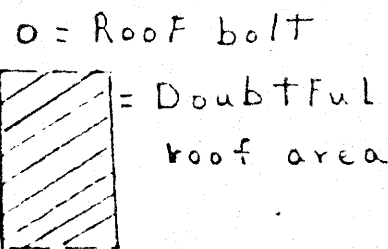 o = Roof bolt
= Doubtful
roof area